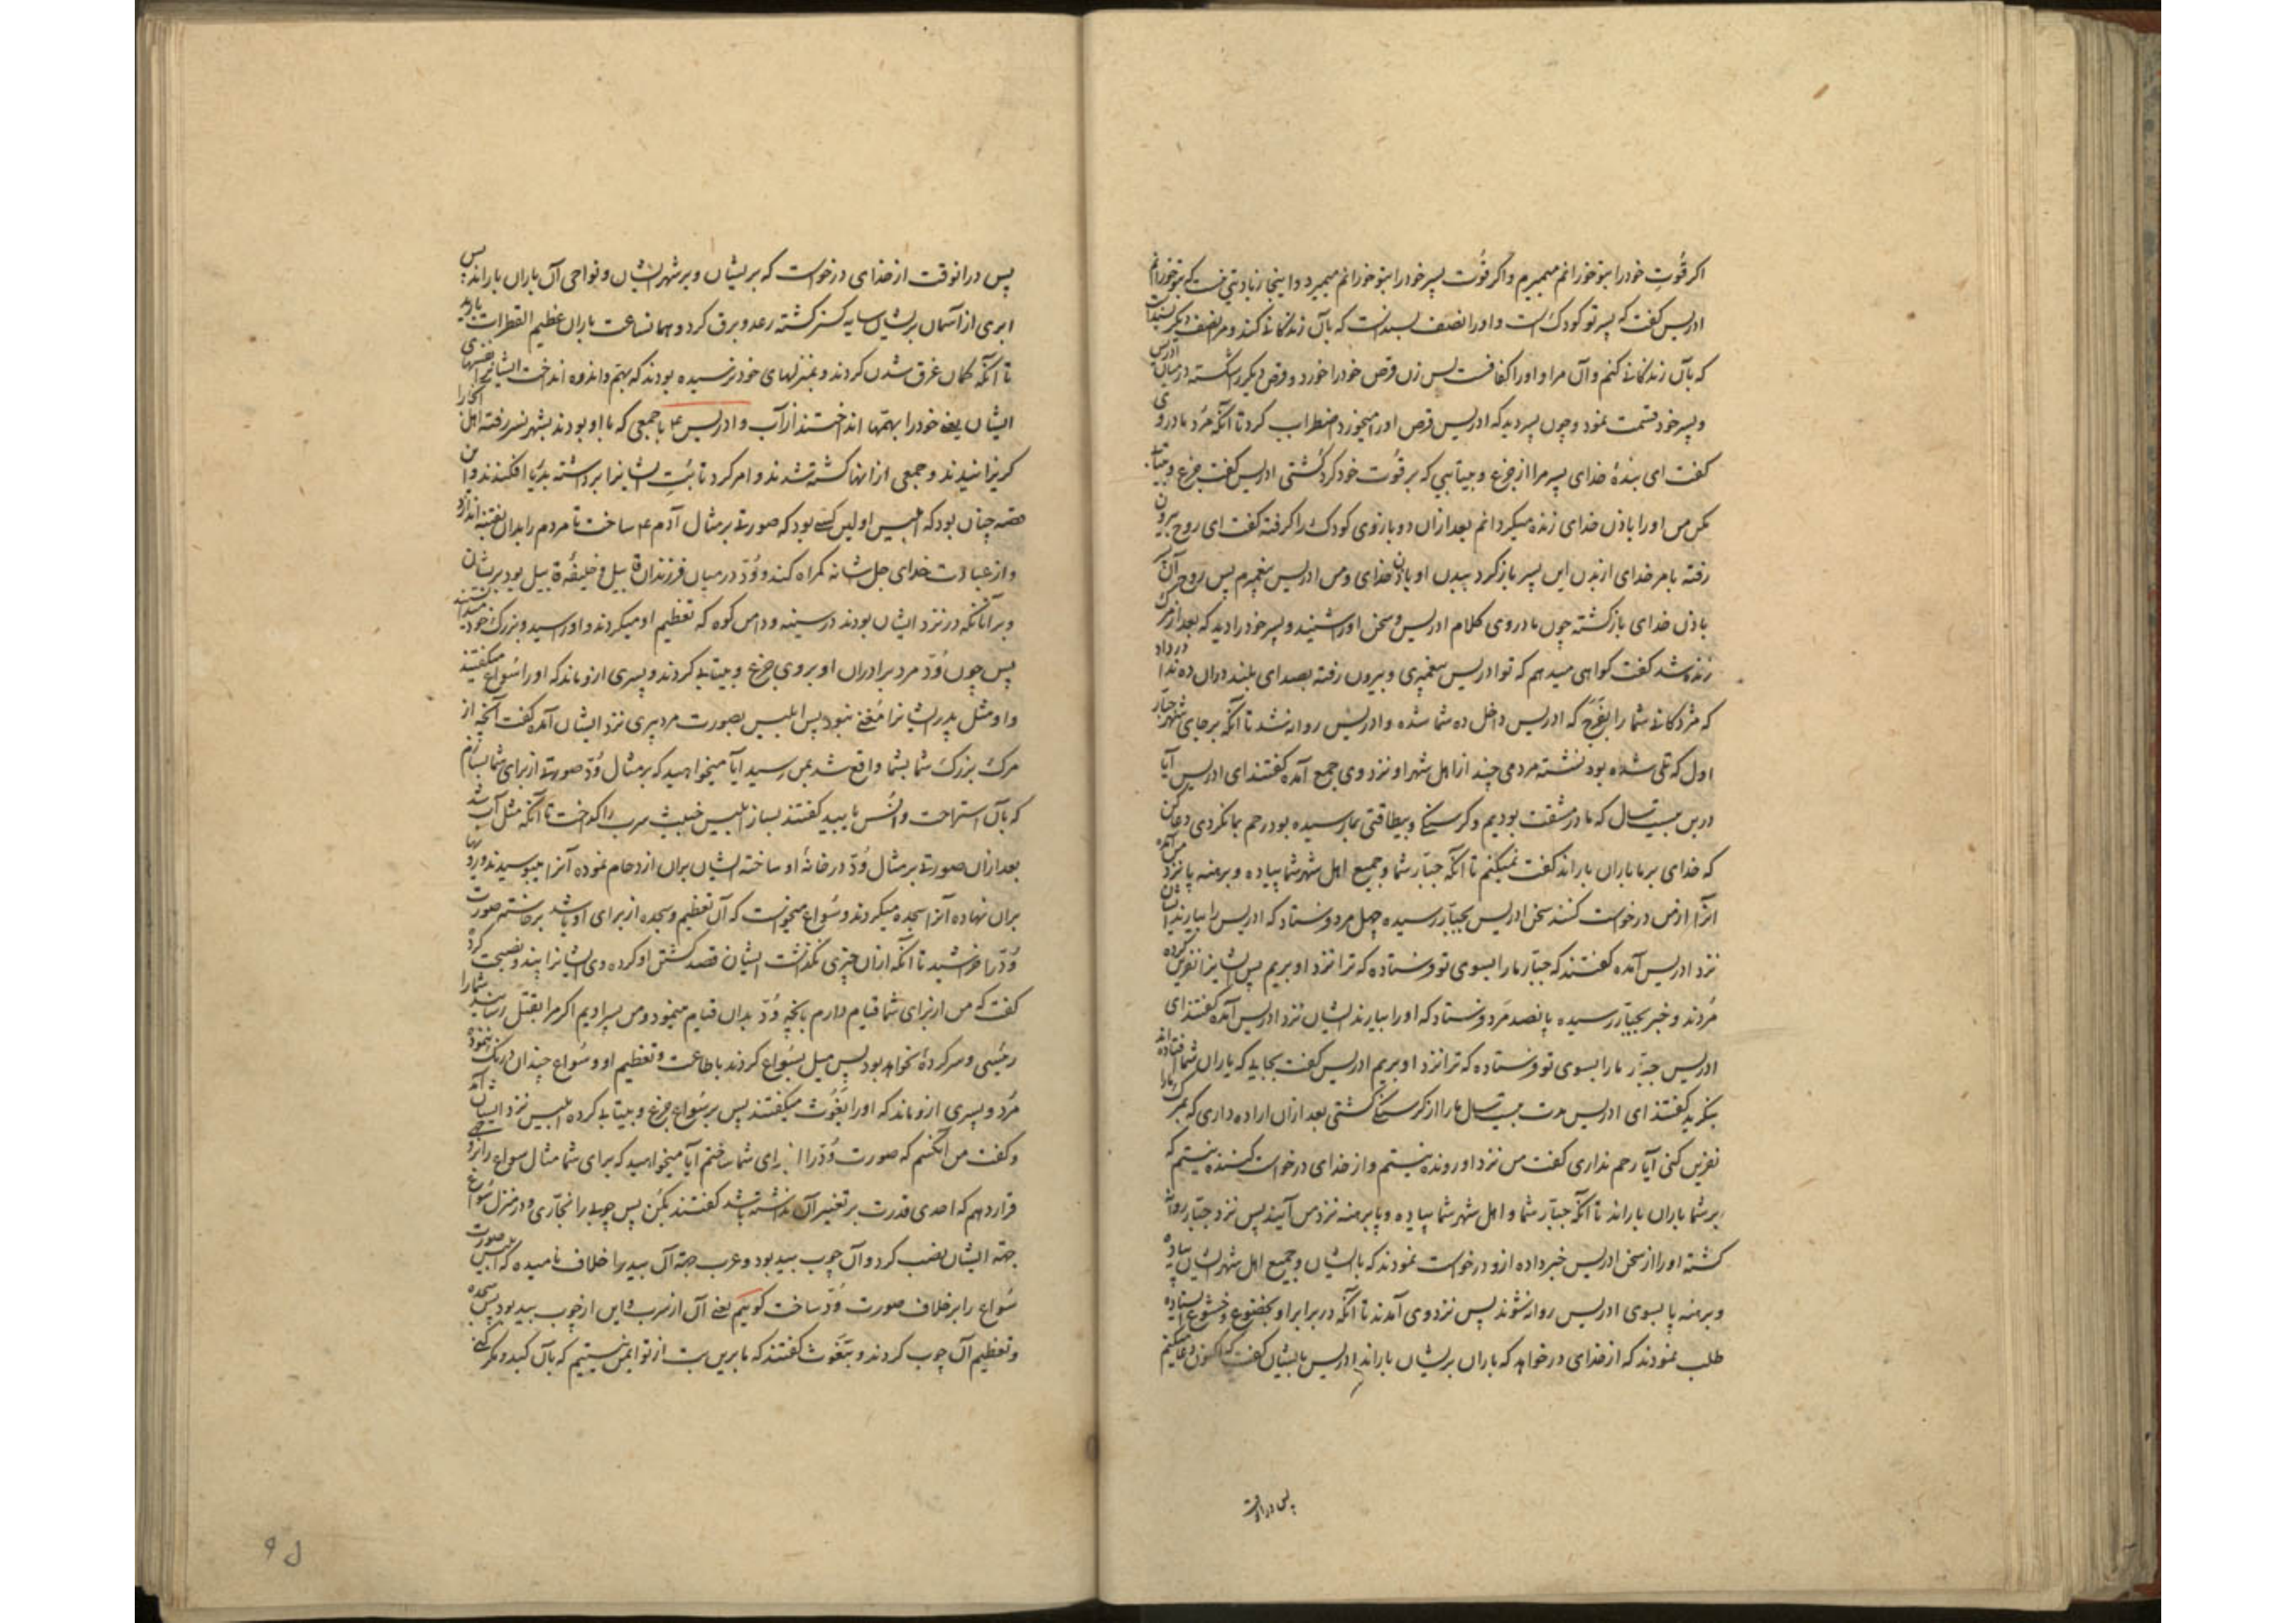 اکر قُوتِ خود را بتو خورانم میمیرم و اکر قُوت پسر خود را بتو خورانم میمیرد و اینجا زیادتی نیست که بتو خورانم
ادریس کفت که پسر تو کودک است و او را نصف بسند است که بآن زندکانی کند و مرا نصف دیکر بسند است
که بآن زندکانی کنم و آن مرا و او را کفافست پس زن قرص خود را خورد و قرص دیکر را شکسته در میان ادریس
و پسر خود قسمت نمود و چون پسر دید که ادریس قرص او را میخورد اضطراب کرد تا آنکه مُرد مادر وی
کفت ای بندهٔ خدای پسر مرا از جزع و بیتابیی که بر قُوت خود کرد کُشتی ادریس کفت جزع و بیتابی
مکن من او را باذن خدای زنده میکردانم بعد ازان دو بازوی کودک را کرفته کفت ای روح بیرون
رفته بامر خدای از بدن این پسر باز کرد ببدن او باذن خدای و من ادریس پیغمبرم پس روح آن پسر
باذن خدای باز کشته چون مادر وی کلام ادریس و سخن او را شنید و پسر خود را دید که بعد از مرک
زنده شد کفت کواهی میدهم که تو ادریس پیغمبری و بیرون رفته بصدای بلند دران ده ندا در داد
که مژدکانی شما را بفَرَج که ادریس داخل ده شما شده و ادریس روانه شد تا آنکه بر جای شهر جبّار
اول که تلی شده بود نشسته مردمی چند از اهل شهر او نزد وی جمع آمده کفتند ای ادریس آیا
درین بیست سال که ما در مشقت بودیم و کرسنکی و بیطاقتی بما رسیده بود رحم بما نکردی دعا کن
که خدای بر ما باران باراند کفت نمیکنم تا آنکه جبّار شما و جمیع اهل شهر شما پیاده و برهنه پا نزد من آمده
آنرا از من درخواست کنند سخن ادریس بجبّار رسیده چهل مرد فرستاد که ادریس را بیارند ایشان
نزد ادریس آمده کفتند که جبّار ما را بسوی تو فرستاده که ترا نزد او بریم پس ایشانرا نفرین کرده
مُردند و خبر بجبّار رسیده پانصد مَرد فرستاد که او را بیارند ایشان نزد ادریس آمده کفتند ای
ادریس جبّار ما را بسوی تو فرستاده که ترا نزد او بریم ادریس کفت بجاییکه یاران شما افتاده اند
بنکرید کفتند ای ادریس مدت بیست سال ما را از کرسنکی کشتی بعد ازان اراده داری که بمرک ما را
نفرین کنی آیا رحم نداری کفت من نزد او رونده نیستم و از خدای درخواست کننده نیستم که
بر شما باران باراند تا آنکه جبّار شما و اهل شهر شما پیاده و پا برهنه نزد من آیند پس نزد جبّار روانه
کشته او را از سخن ادریس خبر داده ازو درخواست نمودند که با ایشان و جمیع اهل شهر ایشان پیاده
و برهنه پا بسوی ادریس روانه شوند پس نزد وی آمدند تا آنکه در برابر او بخضوع و خشوع ایستاده
طلب نمودند که از خدای درخواهد که باران بر ایشان باراند ادریس بایشان کفت که اکنون دعا میکنم
پس درانوقت
پس درانوقت از خدای درخواست که بر ایشان و بر شهر ایشان و نواحی آن باران باراند پس
ابری از آسمان بر ایشان سایه کستر کشته رعد و برق کرد و همانساعت باران عظیم القطرات بارید
تا آنکه کمان غرق شدن کردند و بمنزلهای خود نرسیده بودند که بهَمّ و اندوه انداخت ایشانرا نفسهای
ایشان یعنی خود را بهمّها انداختند از آب و ادریس ع با جمعی که با او بودند بشهر نسر رفته اهل آنجا را
کریزانیدند و جمعی ازانها کشته شدند و امر کرد تا بُتِ ایشانرا برداشته بدریا افکنند و این
قصه چنان بود که ابلیس اولین کسی بود که صورتی بر مثال آدم ع ساخت تا مردم را بدان بفتنه اندازد
و از عبادت خدای جل شانه کمراه کند و وُدّ در میان فرزندان قابیل و خلیفهٔ قابیل بود بر ایشان
و بر آنانکه در نزد ایشان بودند در سینه و دامن کوه که تعظیم او میکردند و او را سید و بزرک خود میدانستند
پس چون وُدّ مرد برادران او بروی جزع و بیتابی کردند و پسری ازو ماند که او را سُواع میکفتند
و او مثل پدر ایشانرا مُغنی نبود پس ابلیس بصورت مرد پیری نزد ایشان آمده کفت آنچه از
مرک بزرک شما بشما واقع شد بمن رسید آیا میخواهید که بر مثال وُدّ صورتی از برای شما بسازم
که بآن استراحت و انُس یابید کفتند بساز ابلیس خبیث سرب را کداخت تا آنکه مثل آب شد
بعد ازان صورتی بر مثال وُدّ در خانهٔ او ساخته ایشان بران ازدحام نموده آنرا میبوسیدند و روها
بران نهاده آنرا سجده میکردند و سُواع میخواست که آن تعظیم و سجده از برای او باشد برخاسته صورت
وُدّ را خراشید تا آنکه ازان چیزی نکذاشت ایشان قصد کشتن او کرده وی ایشانرا پند و نصیحت کرد
کفت که من از برای شما قیام دارم بانچه وُدّ بدان قیام مینمود و من پسر اویم اکر مرا بقتل رسانید شما را
رئیسی و سرکردهٔ نخواهد بود پس میل بسُواع کردند باطاعت و تعظیم او و سُواع چندان درنک ننمود
مُرد و پسری ازو ماند که او را یغُوث میکفتند پس بر سُواع جزع و بیتابی کرده ابلیس نزد ایشان آمد
و کفت من آنکسم که صورت وُدّ را از برای شما ساختم آیا میخواهید که برای شما مثال سواع را
قرار دهم که احدی قدرت بر تغییر آن نداشته باشد کفتند بکُن پس چوبی را نجّاری و در منزل سُواع
جهة ایشان نصب کرد و آن چوب بید بود و عرب جهة آن بید را خلاف نامیده که ابلیس صورت
سُواع را بر خلاف صورت وُدّ ساخت کوییم یعنی آن از سرب و این از چوب بید بود پس سجده
و تعظیم آن چوب کردند و بیَغُوث کفتند که ما برین بت از تو ایمن نیستیم که بآن کید و مکر کنی